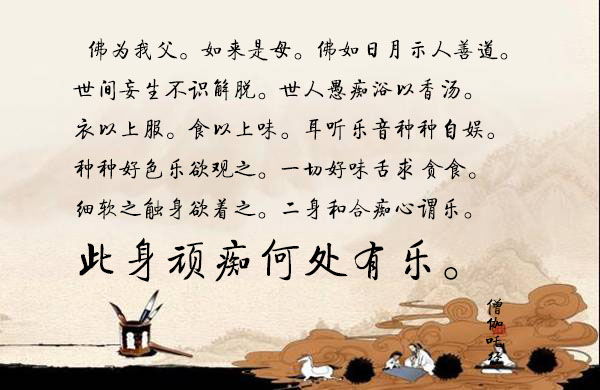 佛为我父。如来是母。佛如日月示人善道。
世间妄生不识解脱。世人愚痴浴以香汤。
衣以上服。食以上味。耳听乐音种种自娱。
种种好色乐欲观之。一切好味舌求贪食。
细软之触身欲着之。二身和合痴心谓乐。
此身顽痴何处有乐。
僧伽吒经